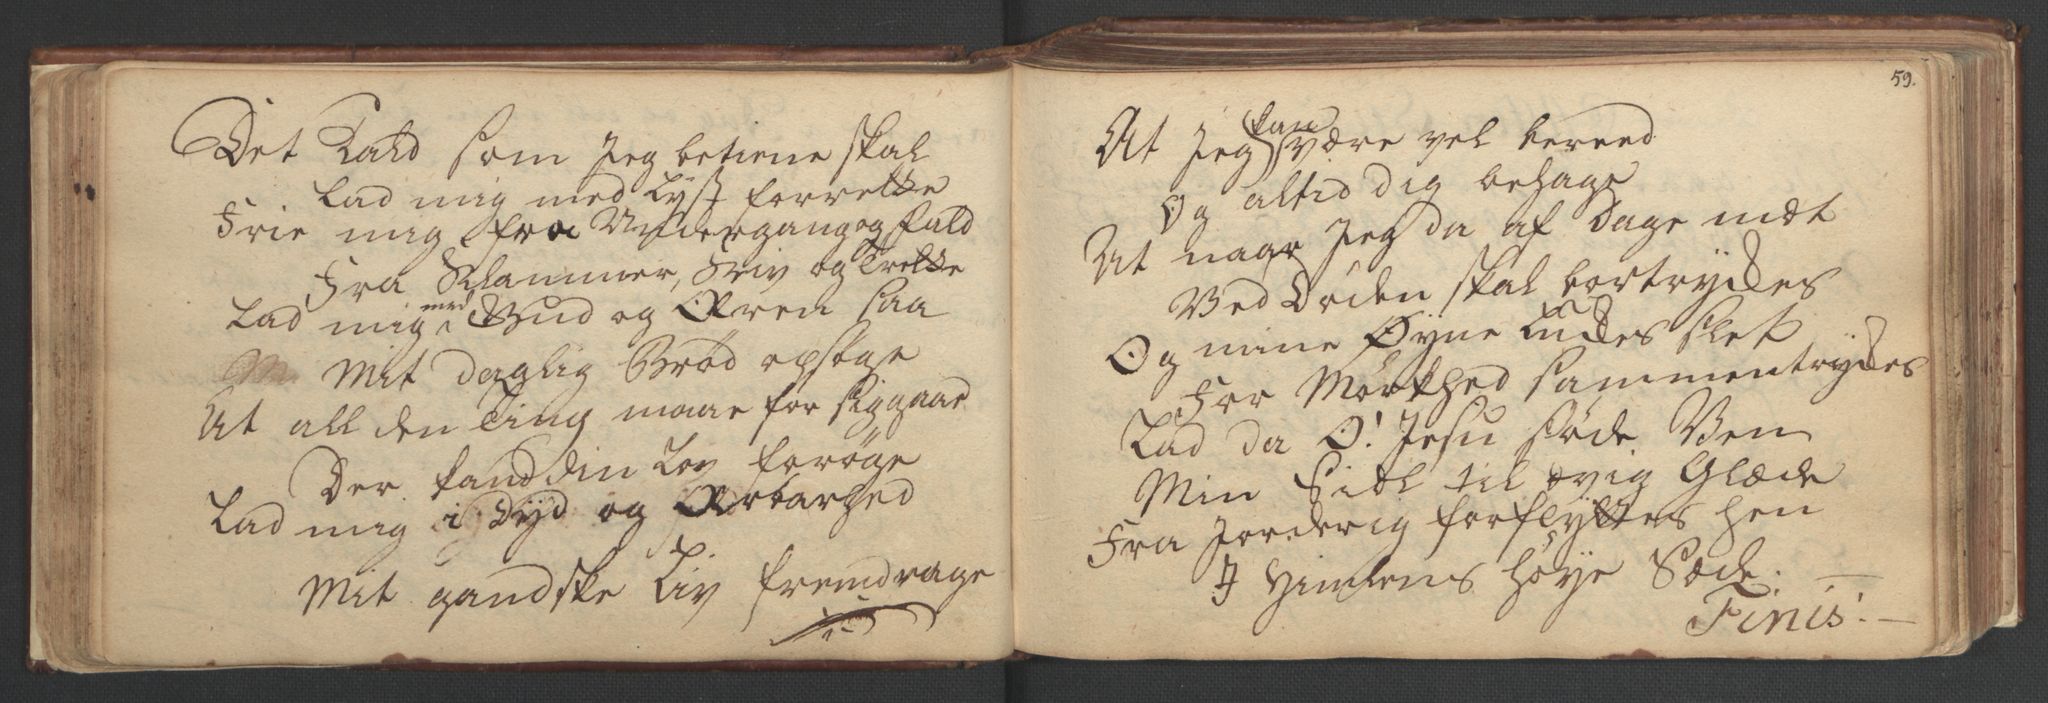 Det Kald som Jeg betiene skal
Lad mig med Lyst forrette
Frie mig fra Undergang og fald
Fra Klammer, Kiv og Trette
Lad mig med Gud og Æren saa
Mit daglig Brød opsøge
At all den Ting maae for sig gaae
Der kand din Lov forøge
Lad mig i Dyd og Ærbarhed
Mit gandske Liv fremdrage
59.
At Jeg kan være vel bereed
Og altid dig behage
At naar Jeg da af Dage mæt
Ved Døden skal bortrykkes
Og mine Øyne lukkes slet
For Mørkhed sammentrykkes
Lad da O! Jesu søde Ven
Min Siæl til ævig Glæde
Fra Jorderig forflyttes hen
I Himlens høye Sæde.
Finis!